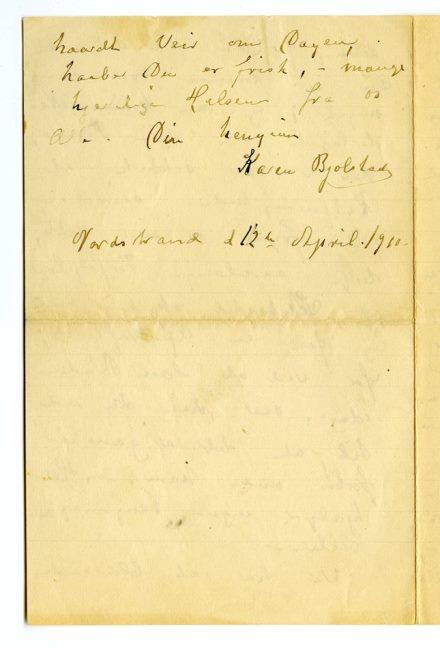 haardt Veir om Dagen,
haaber Du er frisk, – mange
hjertelige Hilsener fra os
Din hengivne
Karen Bjolstad
Nordstrand d 12te April. 1910.